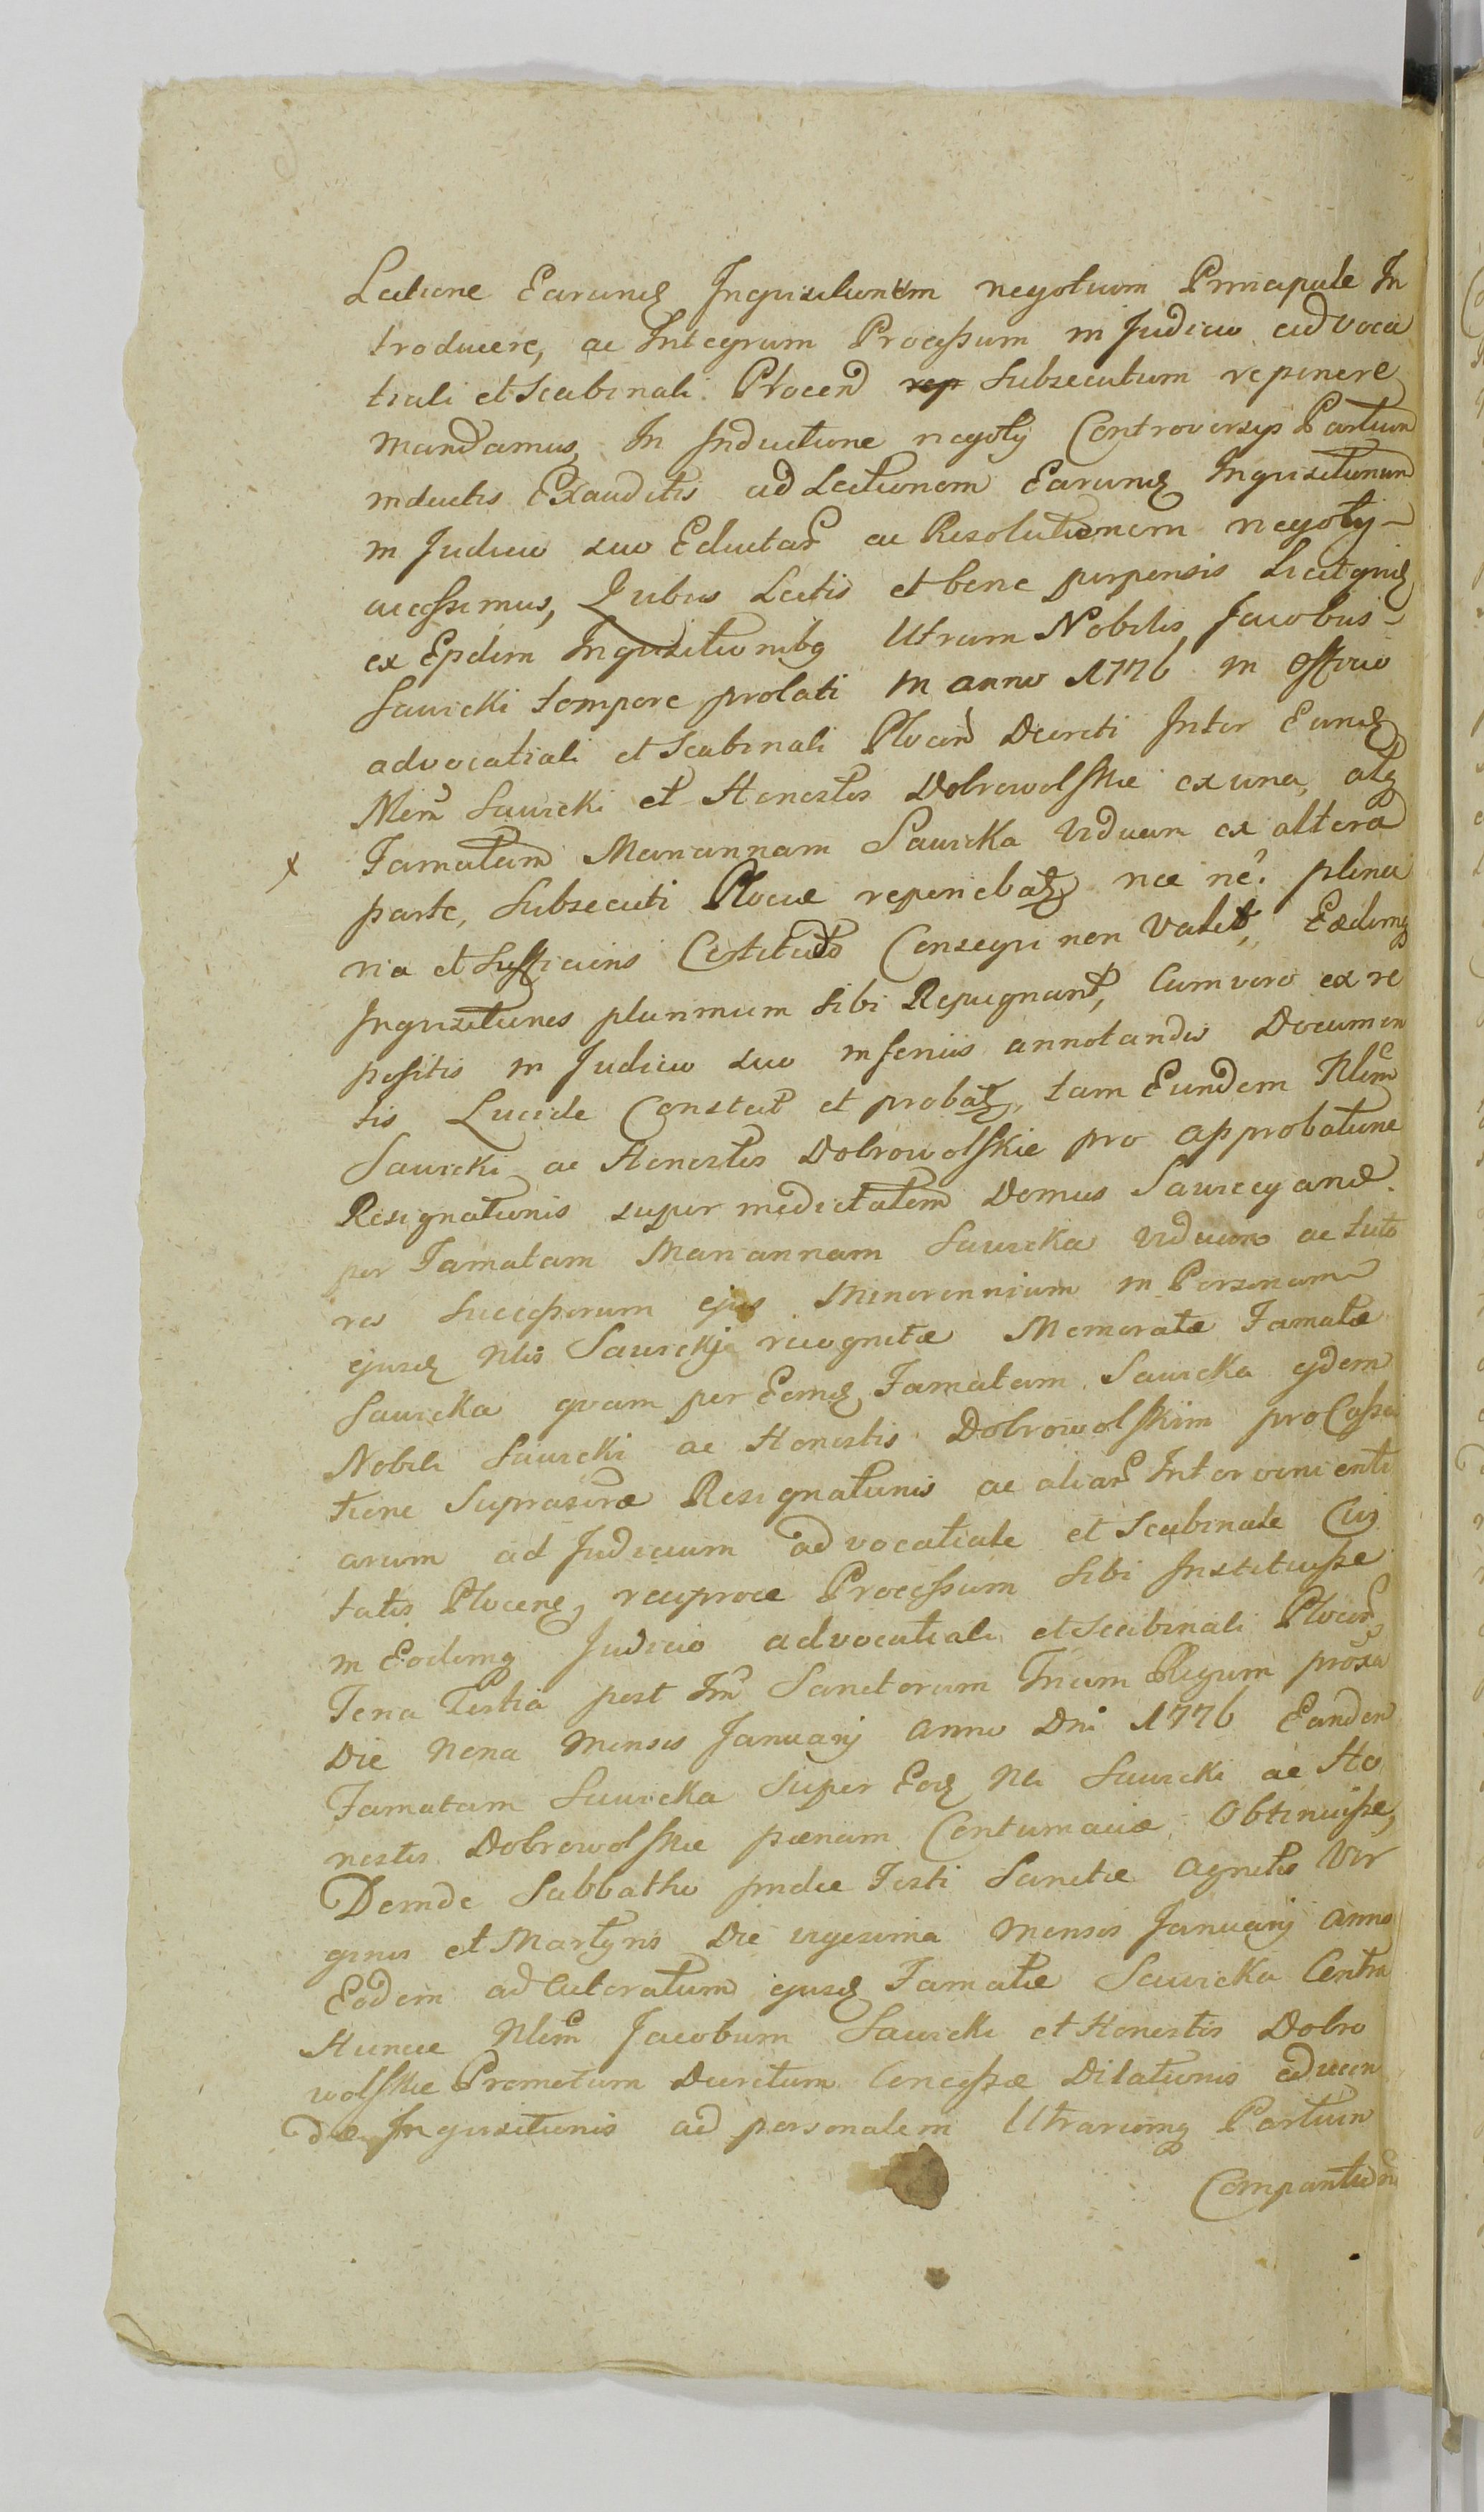 Lectione Earundꝫ Inquisitionum negotium Principale In
troducere, ac Integrum Processum in Judicio advoca
tiali et Scabinali Plocen̄ rep Subsecutum reponere
mandamus, In Inductione negoty Controversys Partium
inductis Exauditis ad Lectionem Earundꝫ Inquisitionum
in Judicio suo Eductar̄ ac Resolutionem negoty –
accessimus, Quibus Lectis et bene perpensis Licet quidꝫ
ex Eysdem Inquisitionibꝫ Utrum Nobilis Jacobus –
Sawicki tempore prolati in anno 1776 in officio
advocatiali et Scabinali Plocen̄ Decreti Inter Eundꝫ
Nlem̄ Sawicki et Honestos Dobrowolskie ex una, atqꝫ
x Famatam Mariannam Sawicka Viduam ex altera
parte, Subsecuti Plocæ reperiebatꝫ nec ne? plena
ria et Sufficiens Certitudo Consequi non Valet, Eædemqꝫ
Inquizitiones plurimum sibi Repugnant, Cum vero ex re
positis in Judicio suo inferius annotandis Documen
tis Lucide Constat et probatꝫ, tam Eundem Nlem̄
Sawicki ac Honestos Dobrowolskie pro approbatione
Resignationis super medietatem Domus Sawiecyanæ
per Famatam Mariannam Sawicka Viduam ac tuto
res Successorum ejus Minorennium in Personam
ejusdꝫ Nlis Sawickj recognitæ Memoratæ Famatæ
Sawicka quam per Eamdꝫ Famatam Sawicka ejdem
Nobili Sawicki ac Honestis Dobrowolskim pro Cassa
tione Suprascræ Resignationis ac aliar̄ Intervenienti
arum ad Judicium advocatiale et Scabinale Civi
tatis Plocenꝫ reciproce Processum sibi Instituisse
in Eodemqꝫ Judicio advocatiali et Scabinali Plocen̄
Feria Tertia post Fm̄ Sanctorum Trium Regum prōxa
Die Nona Mensis Januarij Anno Dni 1776 Eandem
Famatam Sawicka Super Eodꝫ Nli Sawicki ac Ho
nestis Dobrowolskie pænam Contumaciæ Obtinuisse,
Deinde Sabbatho pridie Festi Sanctæ Agnetis Vir
ginis et Martyris Die vigesima Mensis Januarij Anno
Eodem ad Citoratum ejusdꝫ Famatæ Sawicka Contra
Hunce Nlem̄ Jacobum Sawicki et Honestos Dobro
wolskie Promotum Decretum Concessæ Dilationis educen
dæ Inquizitionis ad personalem Utrarumqꝫ Partium
Comparitionem